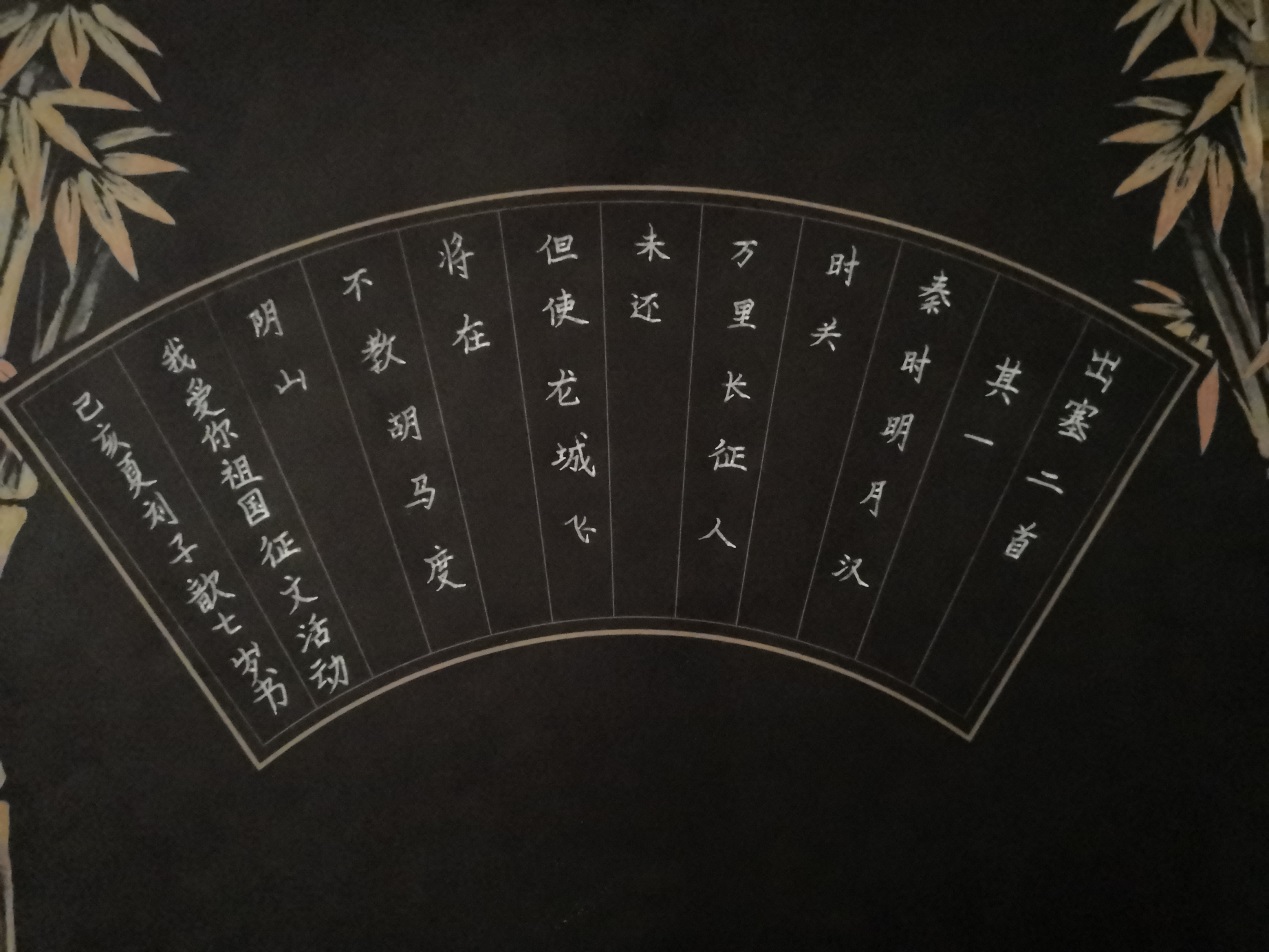 出塞二首
其一
秦时明月汉
时关
万里长征人
未还
但使龙城飞
将在
不教胡马度
阴山
我爱你祖国征文活动
己亥夏刘子歆七岁书